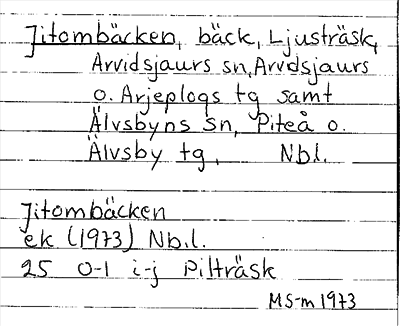 Jitombäcken, bäck, Ljusträsk,
Arvidsjaurs sn, Arvdsjaurs
o. Arjeplogs tg samt
Älvsbyns sn, Piteå o.
Älvsby tg, Nbl.
Jitombäcken
ek (1973) Nb.l.
25 0-1 i-j Pilträsk
MS-m 1973